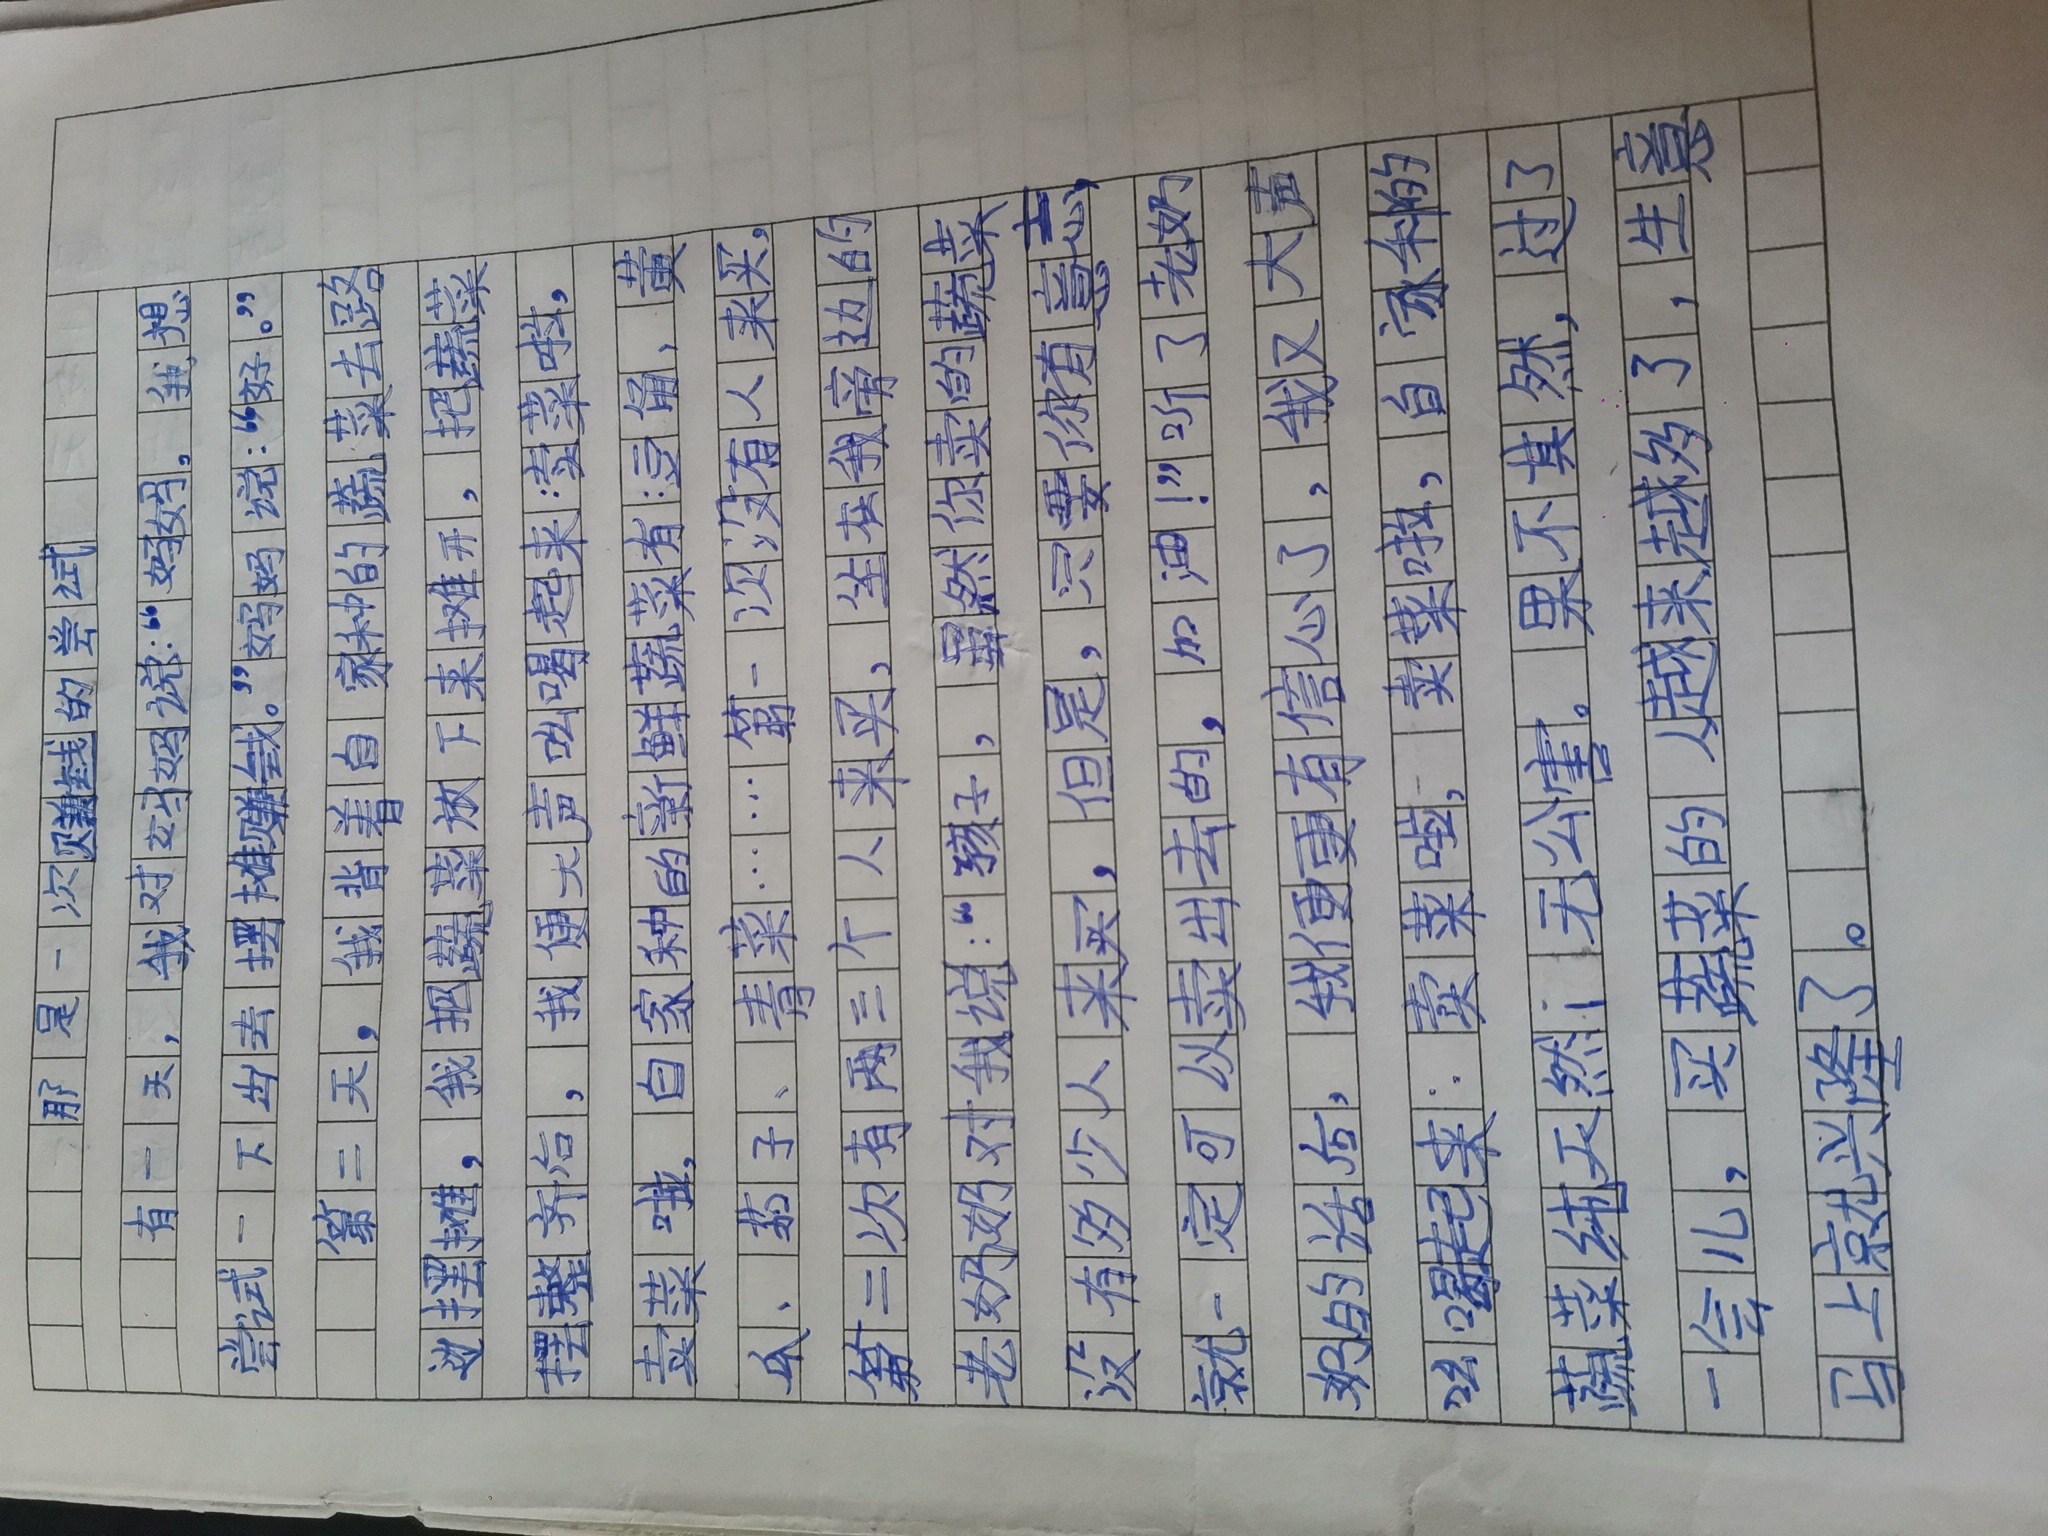 那是一次赚钱的尝试
有一天，我对妈妈说：“妈妈，我想
尝试一下出去摆摊赚钱。”妈妈说：“好。”
第二天，我背着自家种的蔬菜去路
边摆摊，我把蔬菜放下来摊开，把蔬菜
摆整齐后，我便大声吆喝起来：卖菜啦，
卖菜啦，自家种的新鲜蔬菜有：豆角、黄
瓜、茄子、青菜……第一次没有人来买，
第二次有两三个人来买，坐在我旁边的
老奶奶对我说：“孩子，虽然你卖的蔬菜
没有多少人来买，但是，只要你有意志，
就一定可以卖出去的，加油！”听了老奶
奶的话后，我便更有信心了，我又大声
吆喝起来：卖菜啦，卖菜啦，自家种的
蔬菜纯天然；无公害。果不其然，过了
一会儿，买蔬菜的人越来越多了，生意
马上就兴隆了。